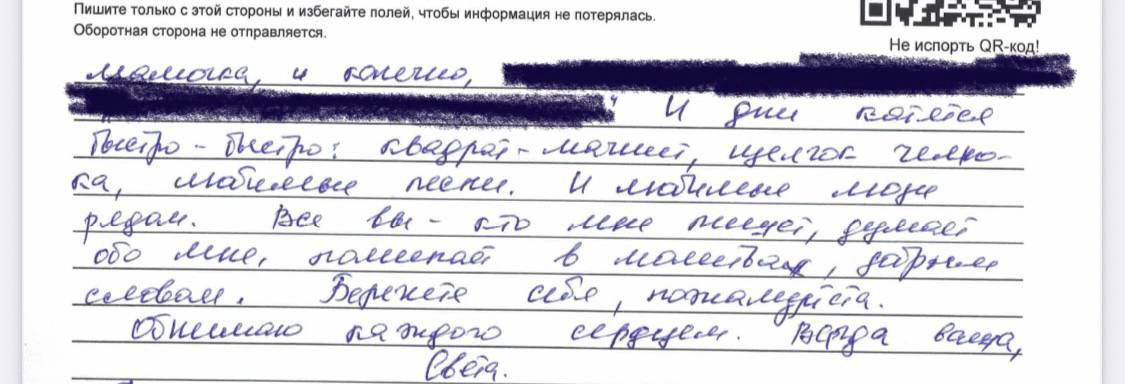 Пишите только с этой стороны и избегайте полей, чтобы информация не потерялась.
Оборотная сторона не отправляется.
Не испорть QR-код!
Мамочка, и конечно,
И дни катятся
быстро-быстро: квадрат-магнит, щелчок челно-
ка, любимые песни. И любимые люди
рядом. Все вы - кто мне пишет, думает
обо мне, поминает в молитвах, добрым
словом. Берегите себя, пожалуйста.
Обнимаю каждого сердцем. Всегда ваша,
Света.